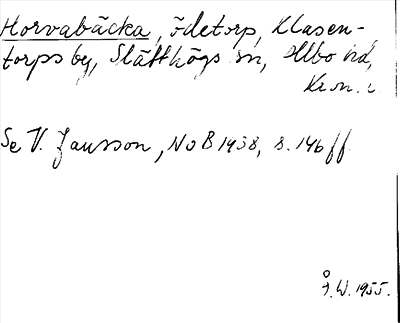 Horvabäcka, ödetorp, Klasen-
torps by, Slätthögs sn, Allbo hd,
Kron. l.
Se V. Jansson, NoB 1938, s. 146 ff.
Å.W. 1955.